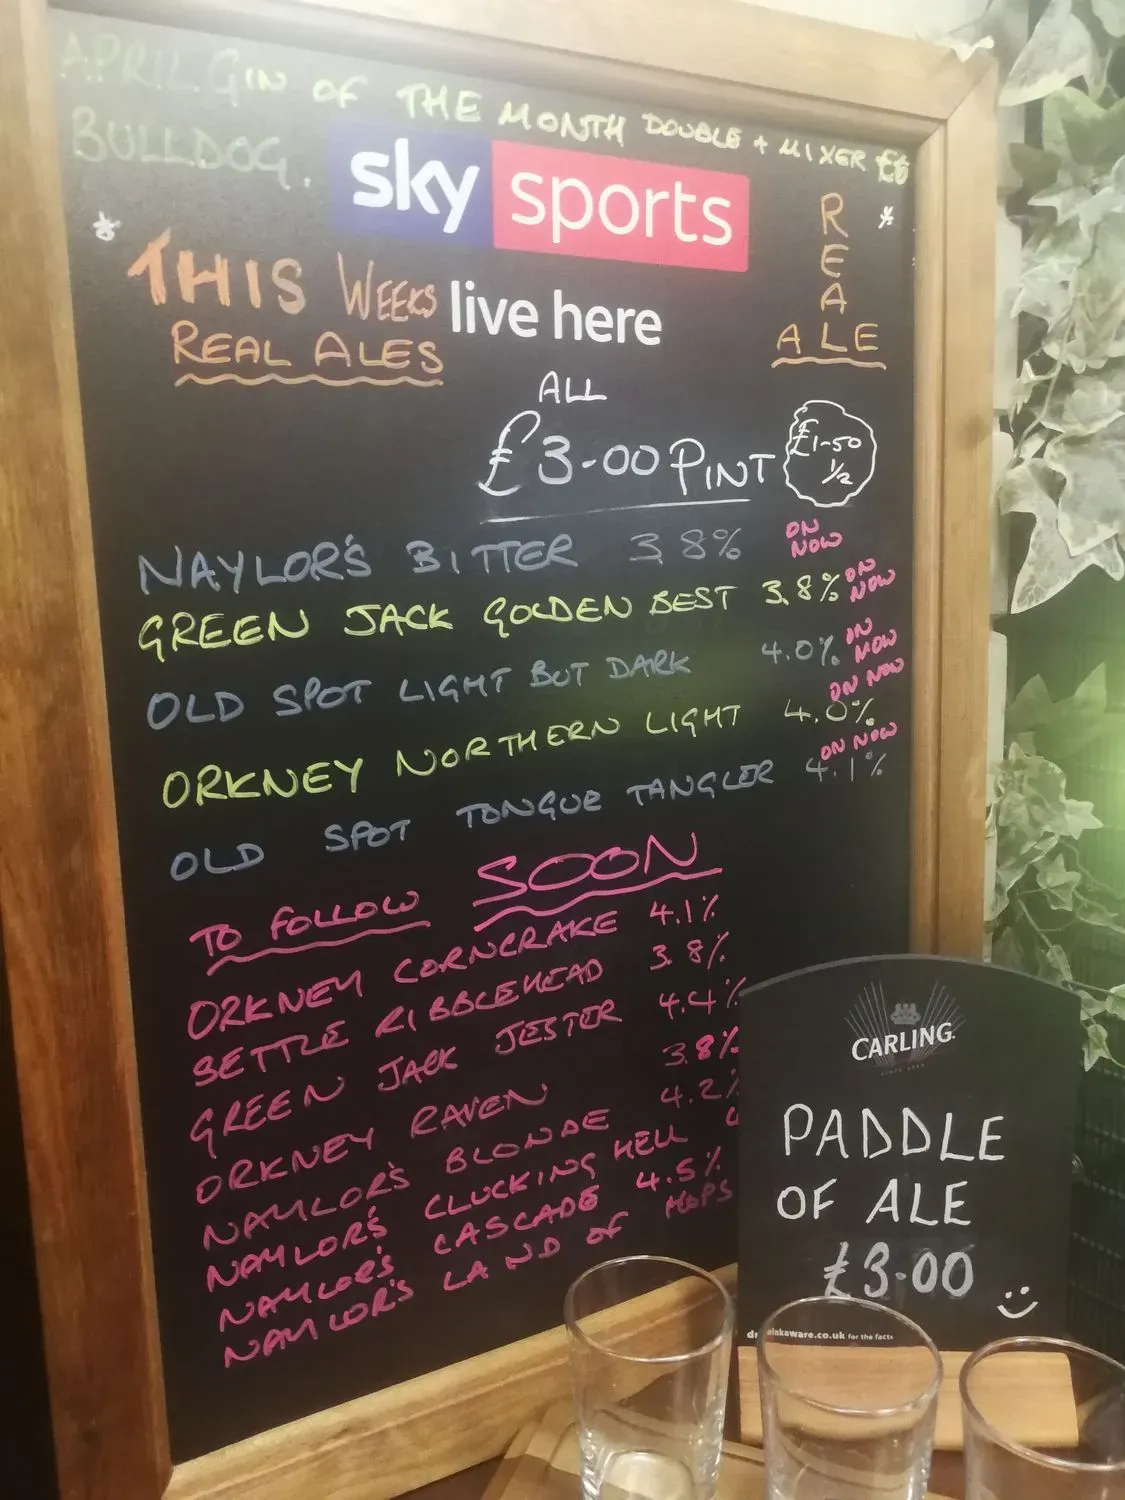 APRIL GIN OF THE MONTH DOUBLE + MIXER £6
BULLDOG.
sky sports
live here
THIS WEEKS
REAL ALES
REAL
ALE
ALL
£3-00 PINT
£1-50
1/2
NAYLOR'S BITTER 3.8% ON NOW
GREEN JACK GOLDEN BEST 3.8% ON NOW
OLD SPOT LIGHT BUT DARK 4.0% ON NOW
ORKNEY NORTHERN LIGHT 4.0% ON NOW
OLD SPOT TONGUE TANGLER 4.1% ON NOW
TO FOLLOW SOON
ORKNEY CORNCRAKE 4.1%
SETTLE RIBBLEHEAD 3.8%
GREEN JACK JESTER 4.4%
ORKNEY RAVEN 3.8%
NAYLOR'S BLONDE 4.2%
NAYLOR'S CLUCKING HELL
NAYLOR'S CASCADE 4.5%
NAYLOR'S LAND OF HOPS
CARLING
PADDLE
OF ALE
£3.00
drinkaware.co.uk for the facts